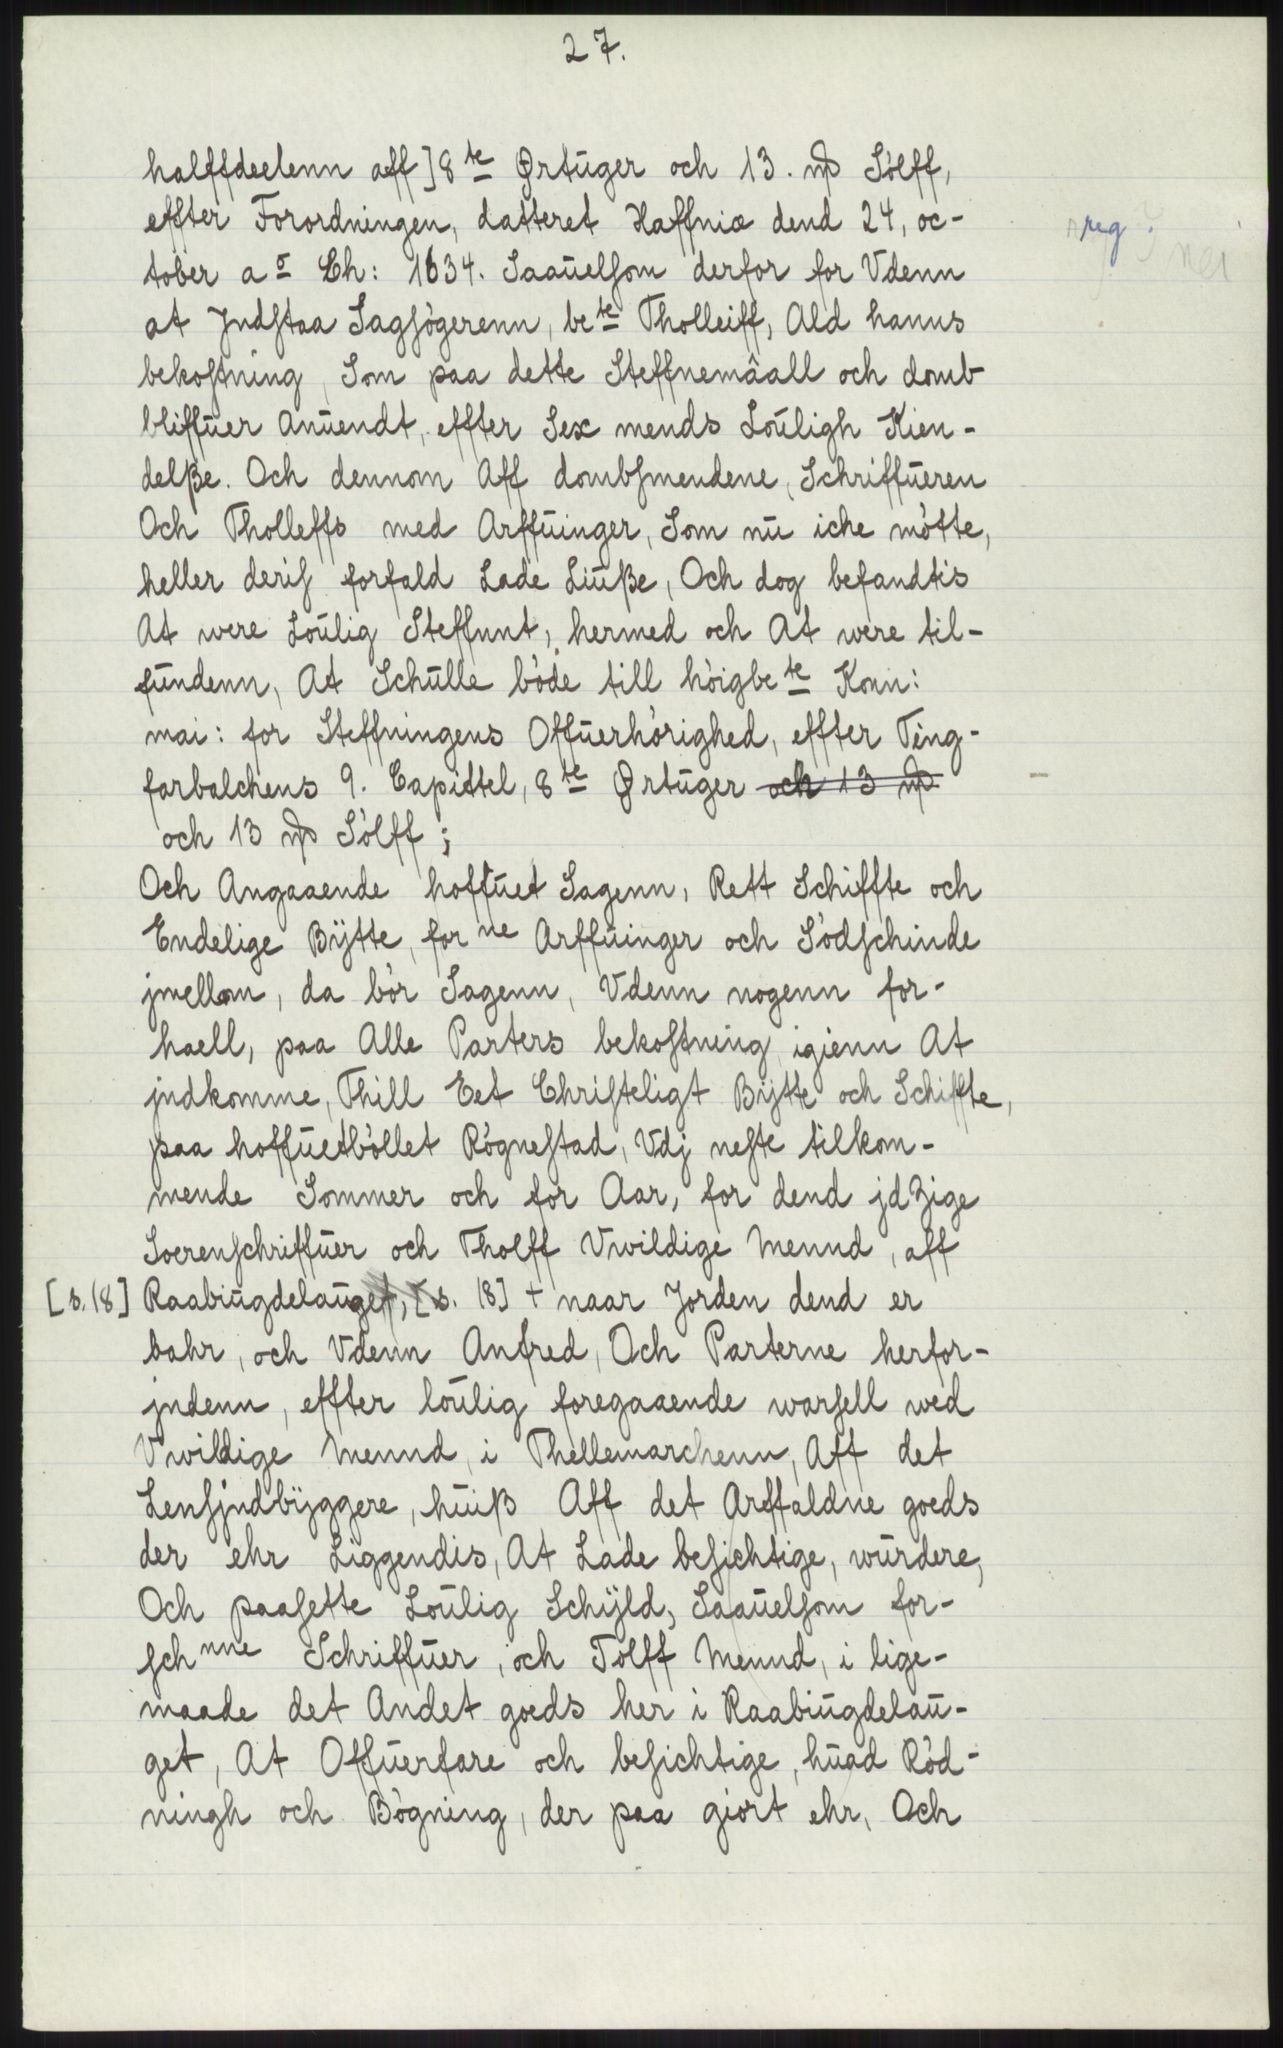 27.
halffdeelenn aff] 8te Ørtuger och 13. mꝓ Sölff,
effter Forordningen, datteret Haffniæ dend 24, oc-
tober ao Ch: 1634. Saauelsom derfor for Vdenn
at Jndstaa Sagsögerenn, bete Tholleiff, Ald hanns
bekostning, Som paa dette Steffnemåall och domb
bliffuer Anuendt, effter Sex mends Louligh Kien-
delße. Och dennom Aff dombsmendene, Schriffueren
Och Tholleffs med Arffuinger, Som nu iche mötte,
heller deris forfald Lade Liuße, Och dog befandtis
At were Loulig Steffnnt, hermed och At were til-
fundenn, At Schulle böde till höigbete Konn:
mai: for Steffningens Offuerhörighed, effter Ting-
farbalchens 9. Capittel, 8te Ørtuger och 13 mꝓ
och 13 mꝓ Sölff;
Och Angaaende hoffuet Sagenn, Rett Schiffte och
Endelige Bÿtte, forne Arffuinger och Södschinde
jmellom, da bör Sagenn, Vdenn nogenn for-
haell, paa Alle Parters bekostning igienn At
jndkomme, Thill Eet Christeligt Bÿtte och Schiffte,
paa hoffuetböllet Rögnestad, Vdj neste tilkom-
mende Sommer och for Aar, for dend jdZige
Soerenschriffuer och Tholff Vwildige Mennd, aff
[s. 18] Raabiugdelauget, [s. 18] + naar Jorden dend er
bahr, och Vdenn Anfred, Och Parterne herfor-
jndenn, effter loulig foregaaende warsell wed
Vwildige Mennd, i Thellemarchenn, Aff det
Lensjndbÿggere, huiß Aff det Arffaldne goeds
der ehr Liggendis, At Lade besichtige, wurdere,
Och paasette Loulig Schÿld, Saauelsom for-
schnne Schriffuer, och Tolff Mennd, i lige-
maade det Andet goeds her i Raabiugdelau-
get, At Offuerfare och besichtige, huad Röd-
ningh och Bögning, der paa giort ehr, Och
reg. ? nei